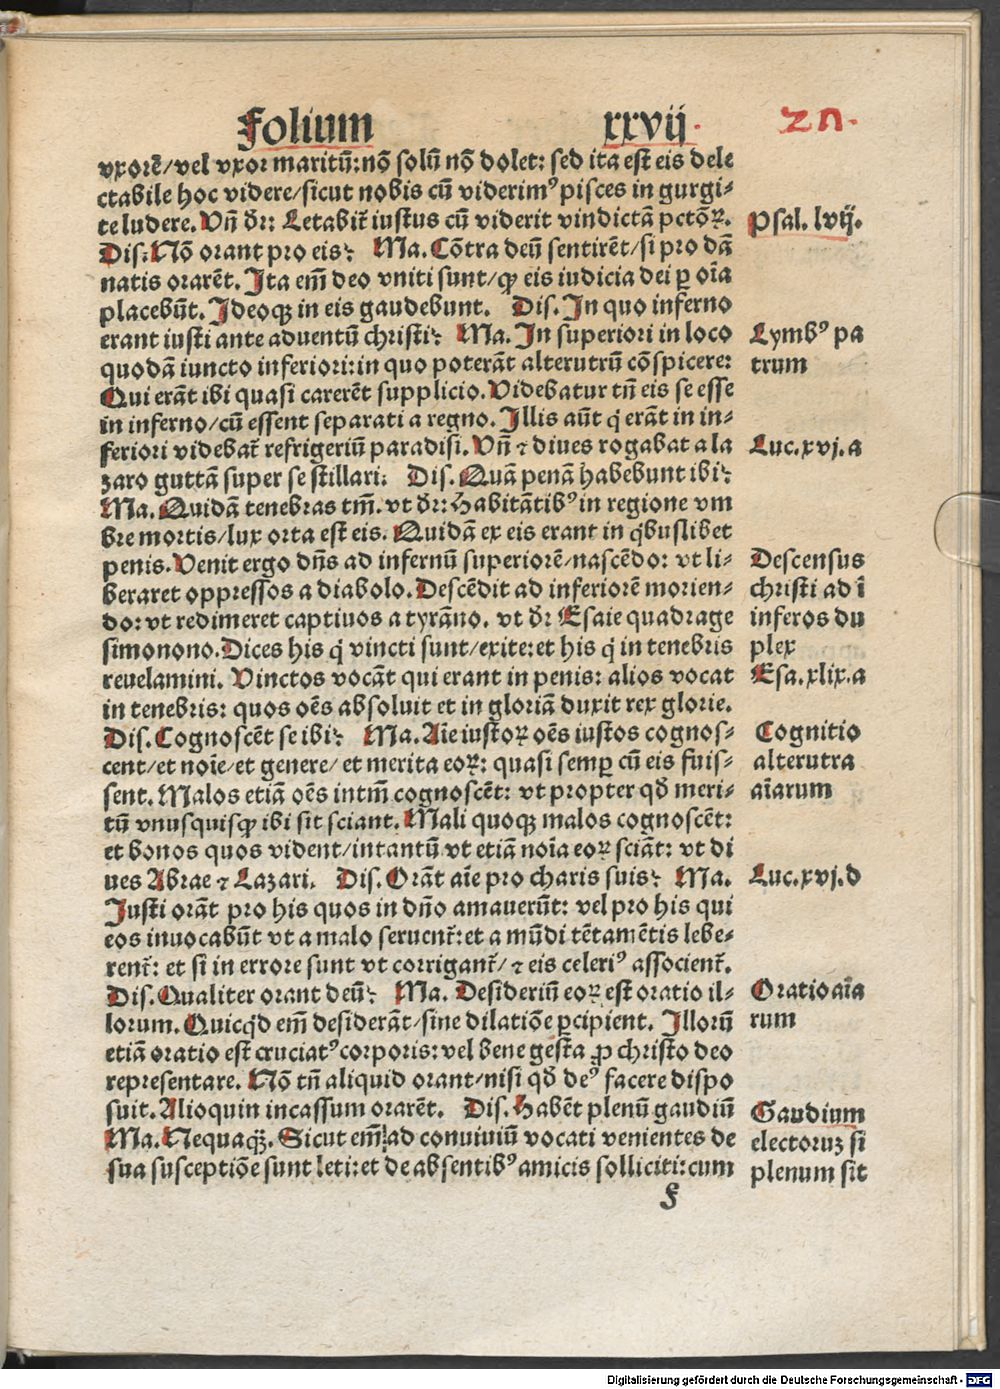 Folium xxvij. 27.
vxorē/vel vxor maritū: nō solū nō dolet: sed ita est eis dele
ctabile hoc videre/sicut nobis cū viderimꝰ pisces in gurgi⸗
te ludere. Vn̄ dr̄: Letabit̄ iustus cū viderit vindictā pctōꝝ.
Psal. lvij.
Dis: Nō orant pro eis? Ma. Cōtra deū sentirēt/si pro dā
natis orarēt. Ita em̄ deo vniti sunt/ꝙ eis iudicia dei ꝑ oīa
placebūt. Ideoqꝫ in eis gaudebunt. Dis. In quo inferno
erant iusti ante aduentū christi? Ma. In superiori in loco
Lymbꝰ pa
quodā iuncto inferiori: in quo poterāt alterutrū cōspicere:
trum
Qui erāt ibi quasi carerēt supplicio. Videbatur tn̄ eis se esse
in inferno/cū essent separati a regno. Illis aūt q̇ erāt in in⸗
feriori videbat̄ refrigeriū paradisi. Vn̄ ⁊ diues rogabat a la
Luc. xvj. a
zaro guttā super se stillari. Dis. Quā penā habebunt ibi?
Ma. Quidā tenebras tm̄. vt dr̄: Habitātibꝰ in regione vm
bre mortis/lux orta est eis. Quidā ex eis erant in q̇buslibet
penis. Venit ergo dn̄s ad infernū superiorē/nascēdo: vt li⸗
Descensus
beraret oppressos a diabolo. Descēdit ad inferiorē morien⸗
christi ad ī
do: vt redimeret captiuos a tyrāno. vt dr̄ Esaie quadrage
inferos du
simonono. Dices his q̇ vincti sunt/exite: et his q̇ in tenebris
plex
reuelamini. Vinctos vocāt qui erant in penis: alios vocat
Esa. xlix. a
in tenebris: quos oēs absoluit et in gloriā duxit rex glorie.
Dis. Cognoscēt se ibi? Ma. Aīe iustoꝝ oēs iustos cognos⸗
Cognitio
cent/et noīe/et genere/et merita eoꝝ: quasi semꝑ cū eis fuis⸗
alterutra
sent. Malos etiā oēs intm̄ cognoscēt: vt propter qd̄ meri⸗
aīarum
tū vnusquisqꝫ ibi sit sciant. Mali quoqꝫ malos cognoscēt:
et bonos quos vident/intantū vt etiā noīa eoꝝ sciāt: vt di
ues Abrae ⁊ Lazari. Dis. Orāt aīe pro charis suis? Ma.
Luc. xvj. d
Iusti orāt pro his quos in dn̄o amauerūt: vel pro his qui
eos inuocabūt vt a malo seruent̄: et a mūdi tētamētis lebe⸗
rent̄: et si in errore sunt vt corrigant̄/⁊ eis celeriꝰ associent̄.
Dis. Qualiter orant deū? Ma. Desideriū eoꝝ est oratio il⸗
Oratio aīa
lorum. Quicq̇d em̄ desiderāt/sine dilatiōe ꝑcipient. Illorū
rum
etiā oratio est cruciatꝰ corporis: vel bene gesta ꝓ christo deo
representare. Nō tn̄ aliquid orant/nisi qd̄ deꝰ facere dispo
suit. Alioquin incassum orarēt. Dis. Habēt plenū gaudiū
Gaudium
Ma. Nequaqꝫ̄. Sicut em̄ ad conuiuiū vocati venientes de
electoruꝫ si
sua susceptiōe sunt leti: et de absentibꝰ amicis solliciti: cum
plenum sit
f
Digitalisierung gefördert durch die Deutsche Forschungsgemeinschaft - DFG